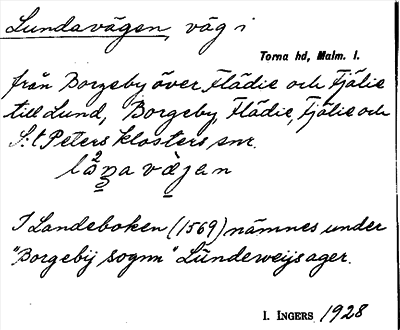 Lundavägen, väg i
Torna hd, Malm. l.
från Borgeby över Flädie och Fjälie
till Lund, Borgeby, Flädie, Fjälie och
S:t Peters klosters snr.
I Landeboken (1569) nämnes under
"Borgebij sognn" Lůndeweijs ager.
I. INGERS 1928